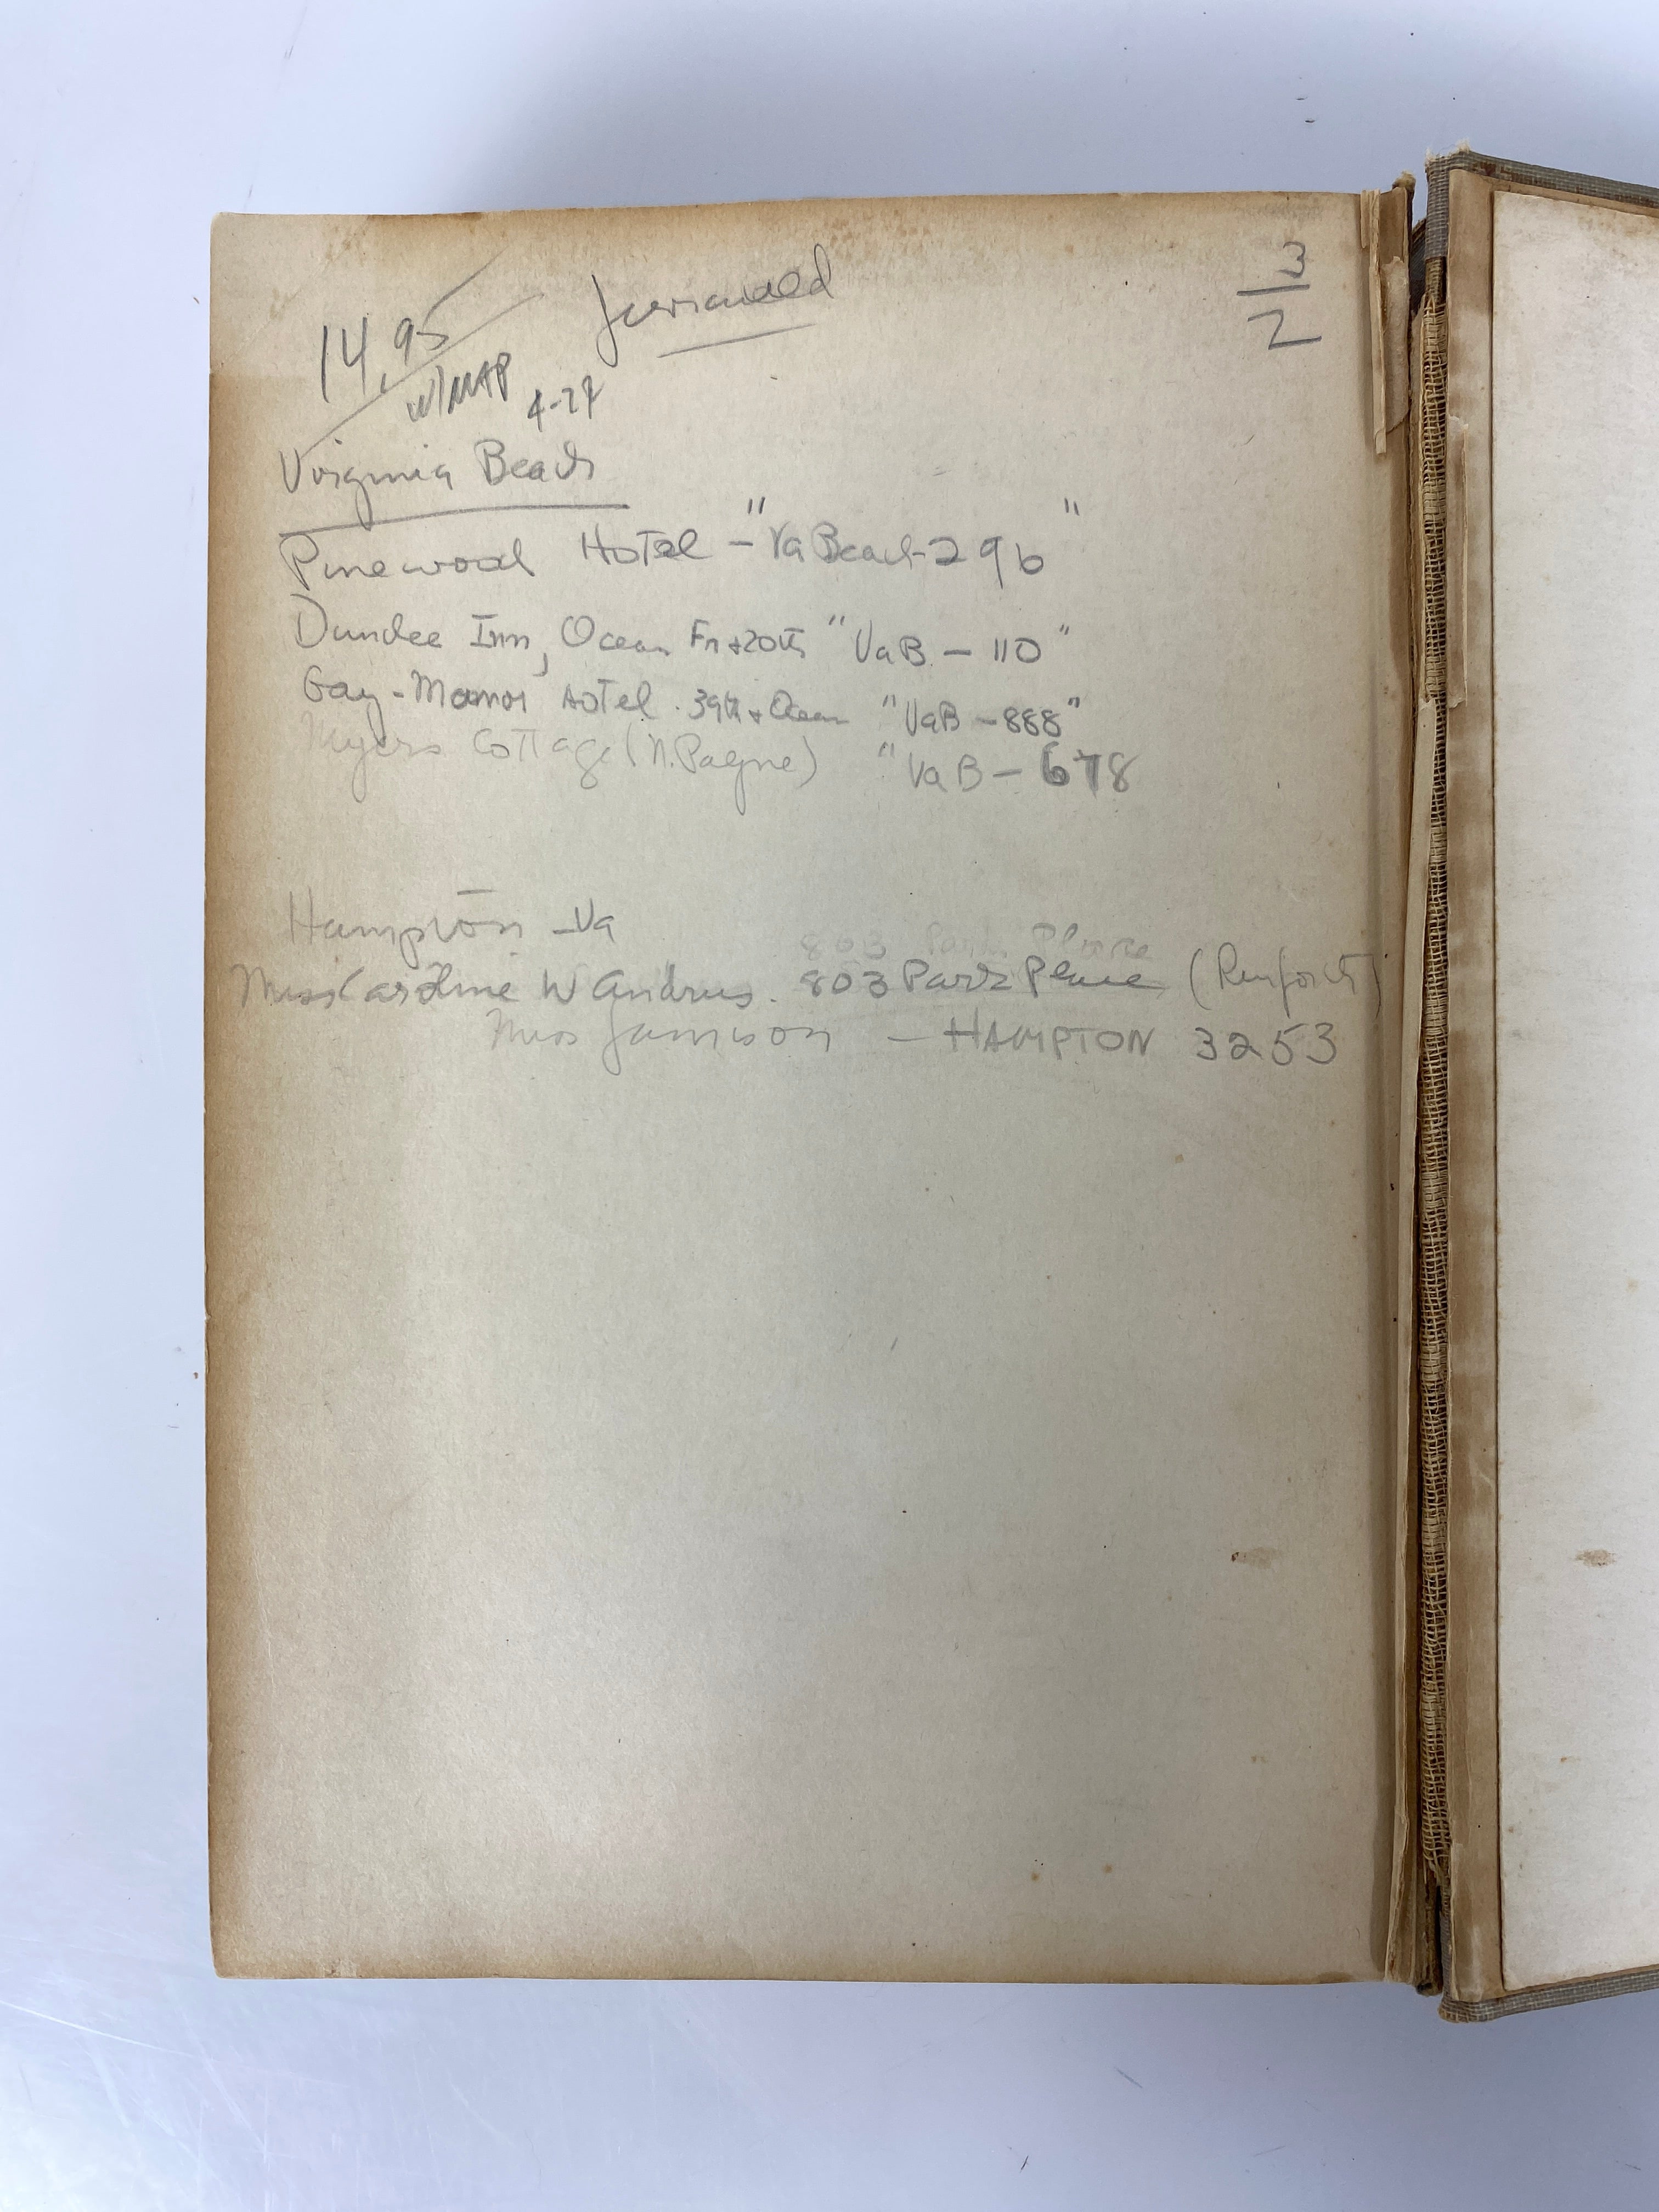 3
2
14.95
w/MAP 4-29
Virginia Beach
Pinewood Hotel - "Va Beach-296"
Dundee Inn, Ocean Fr + 20th "VaB - 110"
Gay-Manor Hotel. 39th + Ocean "VaB - 888"
Myers Cottage (N. Payne) "VaB - 678
Hampton - Va
803 Park Place
Miss Caroline W Andrus. 803 Park Place
Miss Jamison - HAMPTON 3253